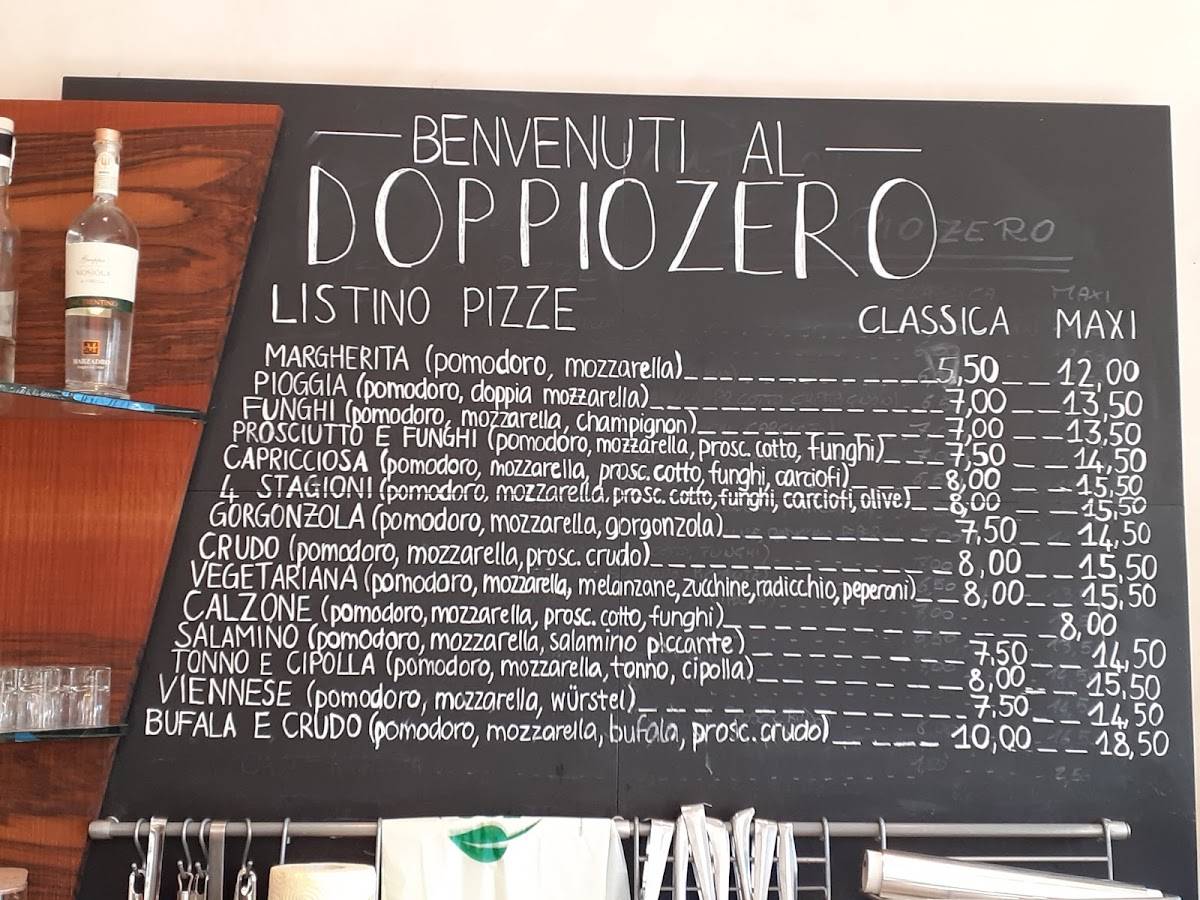 BENVENUTI AL
DOPPIOZERO
LISTINO PIZZE CLASSICA MAXI
MARGHERITA (pomodoro, mozzarella) 5,50 12,00
PIOGGIA (pomodoro, doppia mozzarella) 7,00 13,50
FUNGHI (pomodoro, mozzarella, champignon) 7,00 13,50
PROSCIUTTO E FUNGHI (pomodoro, mozzarella, prosc. cotto, funghi) 7,50 14,50
CAPRICCIOSA (pomodoro, mozzarella, prosc. cotto, funghi, carciofi) 8,00 15,50
4 STAGIONI (pomodoro, mozzarella, prosc. cotto, funghi, carciofi, olive) 8,00 15,50
GORGONZOLA (pomodoro, mozzarella, gorgonzola) 7,50 14,50
CRUDO (pomodoro, mozzarella, prosc. crudo) 8,00 15,50
VEGETARIANA (pomodoro, mozzarella, melanzane, zucchine, radicchio, peperoni) 8,00 15,50
CALZONE (pomodoro, mozzarella, prosc. cotto, funghi) 8,00
SALAMINO (pomodoro, mozzarella, salamino piccante) 7,50 14,50
TONNO E CIPOLLA (pomodoro, mozzarella, tonno, cipolla) 8,00 15,50
VIENNESE (pomodoro, mozzarella, würstel) 7,50 14,50
BUFALA E CRUDO (pomodoro, mozzarella, bufala, prosc. crudo) 10,00 18,50
TRENTINO